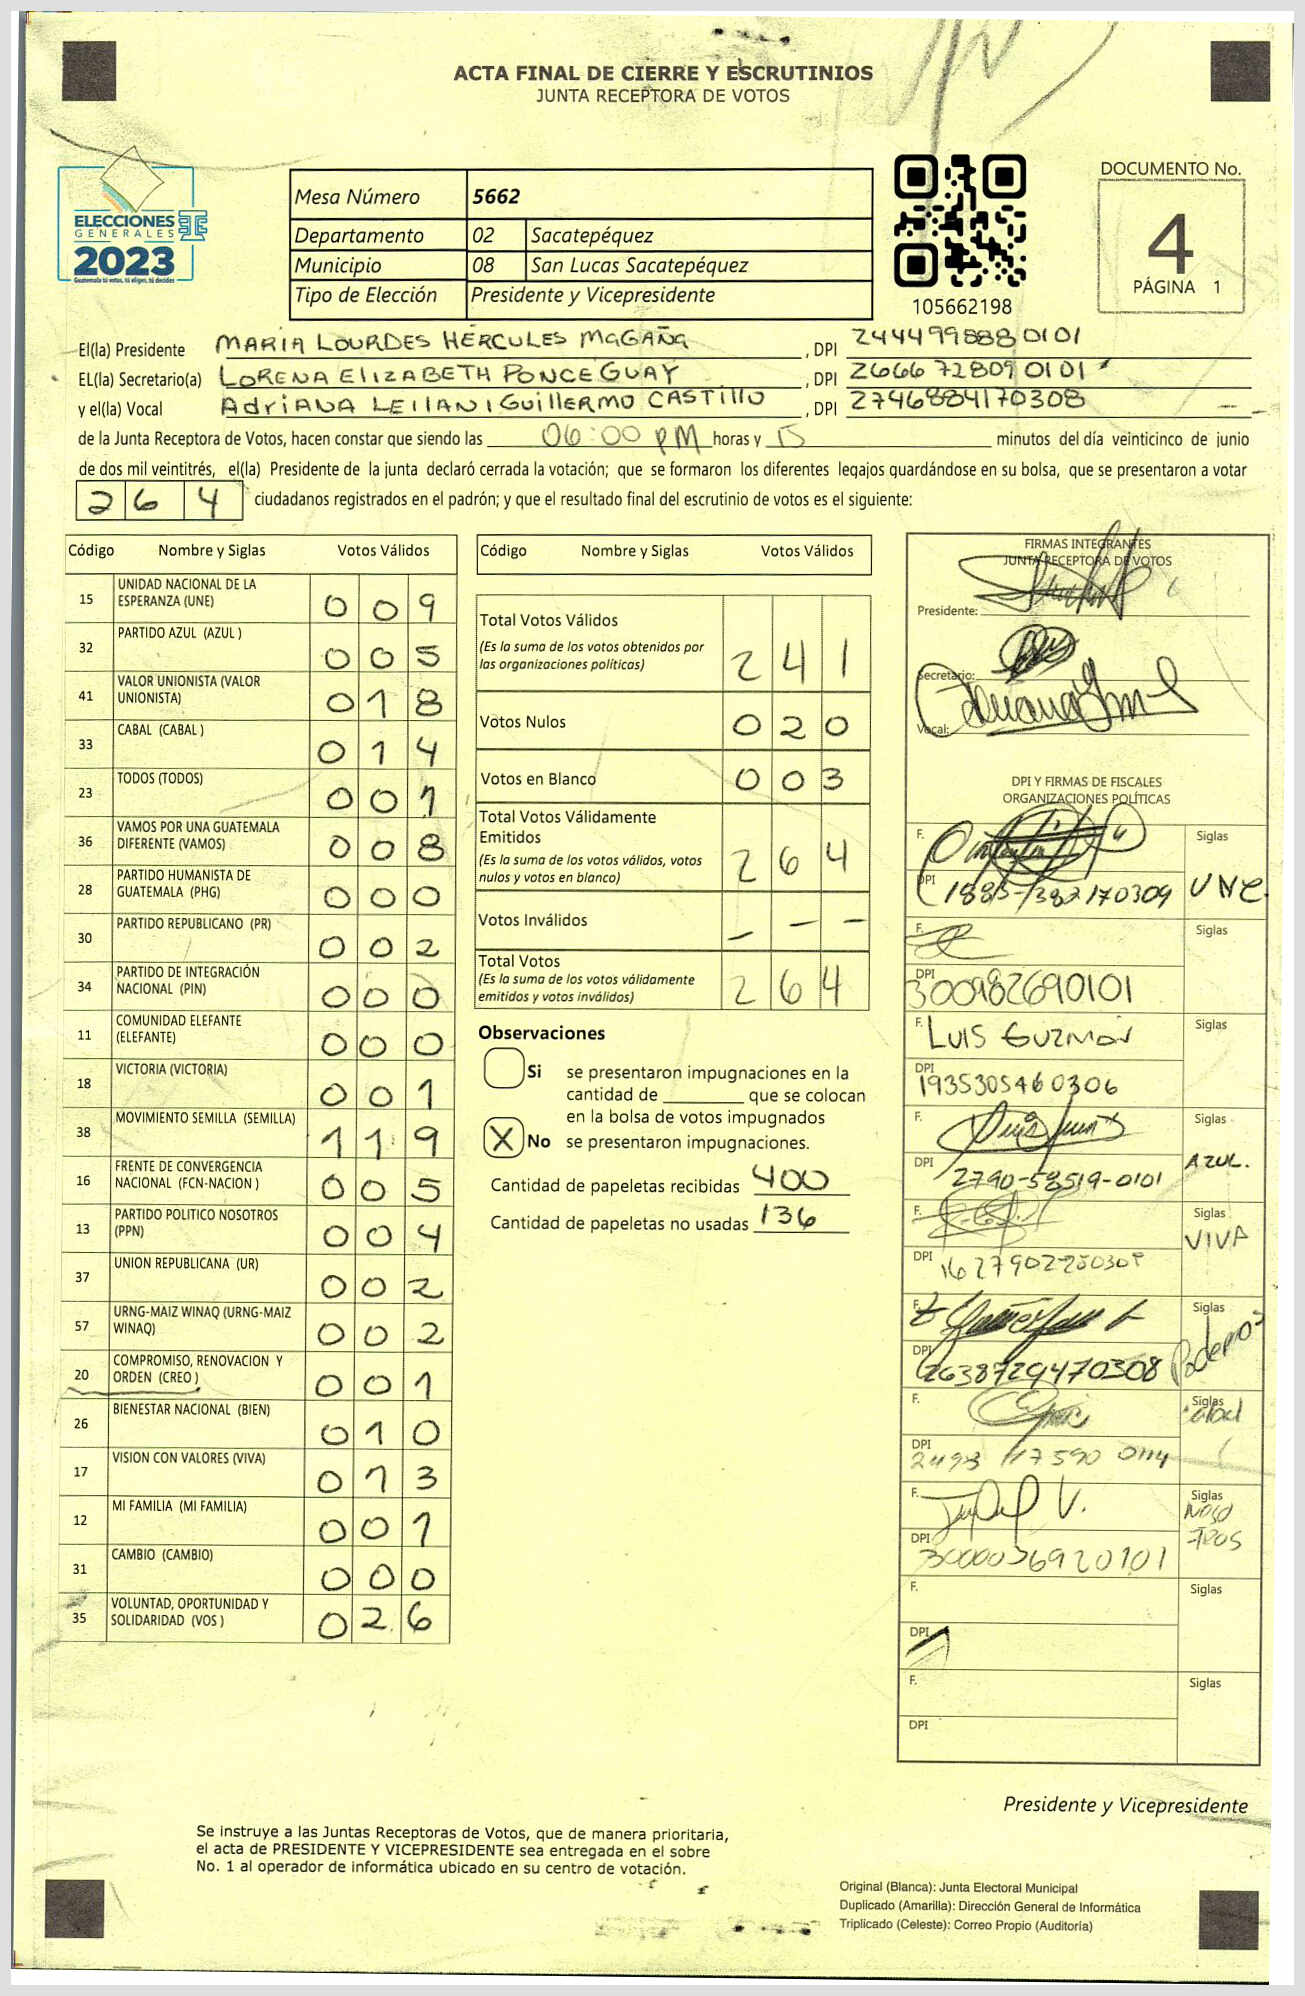 ACTA FINAL DE CIERRE Y ESCRUTINIOS
JUNTA RECEPTORA DE VOTOS
ELECCIONES
GENERALES
2023
Guatemala tú votas, tú eliges, tú decides
Mesa Número 5662
Departamento 02 Sacatepéquez
Municipio 08 San Lucas Sacatepéquez
Tipo de Elección Presidente y Vicepresidente
105662198
DOCUMENTO No.
4
PÁGINA 1
El(la) Presidente MARIA LOURDES HERCULES MaGAÑA , DPI 2444998880101
EL(la) Secretario(a) LORENA ELIZABETH PONCE GUAY , DPI 2666728090101
y el(la) Vocal AdriANA LEILANI GuillERMO CASTILLO , DPI 2746884170308
de la Junta Receptora de Votos, hacen constar que siendo las 06:00 PM horas y 15 minutos del día veinticinco de junio
de dos mil veintitrés, el(la) Presidente de la junta declaró cerrada la votación; que se formaron los diferentes legajos quardándose en su bolsa, que se presentaron a votar
264 ciudadanos registrados en el padrón; y que el resultado final del escrutinio de votos es el siguiente:
Código Nombre y Siglas Votos Válidos
15 UNIDAD NACIONAL DE LA ESPERANZA (UNE) 009
32 PARTIDO AZUL (AZUL ) 005
41 VALOR UNIONISTA (VALOR UNIONISTA) 018
33 CABAL (CABAL ) 014
23 TODOS (TODOS) 001
36 VAMOS POR UNA GUATEMALA DIFERENTE (VAMOS) 008
28 PARTIDO HUMANISTA DE GUATEMALA (PHG) 000
30 PARTIDO REPUBLICANO (PR) 002
34 PARTIDO DE INTEGRACIÓN NACIONAL (PIN) 000
11 COMUNIDAD ELEFANTE (ELEFANTE) 000
18 VICTORIA (VICTORIA) 001
38 MOVIMIENTO SEMILLA (SEMILLA) 119
16 FRENTE DE CONVERGENCIA NACIONAL (FCN-NACION ) 005
13 PARTIDO POLITICO NOSOTROS (PPN) 004
37 UNION REPUBLICANA (UR) 002
57 URNG-MAIZ WINAQ (URNG-MAIZ WINAQ) 002
20 COMPROMISO, RENOVACION Y ORDEN (CREO ) 001
26 BIENESTAR NACIONAL (BIEN) 010
17 VISION CON VALORES (VIVA) 013
12 MI FAMILIA (MI FAMILIA) 001
31 CAMBIO (CAMBIO) 000
35 VOLUNTAD, OPORTUNIDAD Y SOLIDARIDAD (VOS ) 026
Código Nombre y Siglas Votos Válidos
Total Votos Válidos 241
(Es la suma de los votos obtenidos por
las organizaciones políticas)
Votos Nulos 020
Votos en Blanco 003
Total Votos Válidamente
Emitidos 264
(Es la suma de los votos válidos, votos
nulos y votos en blanco)
Votos Inválidos – – –
Total Votos 264
(Es la suma de los votos válidamente
emitidos y votos inválidos)
Observaciones
Si se presentaron impugnaciones en la
cantidad de ________ que se colocan
en la bolsa de votos impugnados
X No se presentaron impugnaciones.
Cantidad de papeletas recibidas 400
Cantidad de papeletas no usadas 136
FIRMAS INTEGRANTES
JUNTA RECEPTORA DE VOTOS
Presidente:
Secretario:
Vocal:
DPI Y FIRMAS DE FISCALES
ORGANIZACIONES POLÍTICAS
F. Siglas
DPI UNE
F. Siglas
DPI 300982690101
F. LUIS GUZMÁN Siglas
DPI 1935305460306
F. Siglas
DPI 2790-58519-0101 AZUL.
F. Siglas
DPI VIVA
F. Siglas
DPI 2638729470308 Podemos
F. Siglas
DPI
F. Siglas
DPI NOSO
-TROS
F. Siglas
DPI
F. Siglas
DPI
Presidente y Vicepresidente
Se instruye a las Juntas Receptoras de Votos, que de manera prioritaria,
el acta de PRESIDENTE Y VICEPRESIDENTE sea entregada en el sobre
No. 1 al operador de informática ubicado en su centro de votación.
Original (Blanca): Junta Electoral Municipal
Duplicado (Amarilla): Dirección General de Informática
Triplicado (Celeste): Correo Propio (Auditoría)